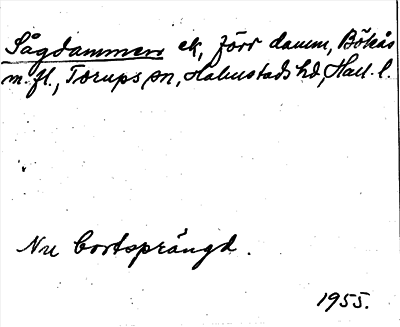 Sågdammen ek, förr damm, Bökås
m. fl., Torups sn, Halmstads hd, Hall. l.
Nu bortsprängd.
1955.